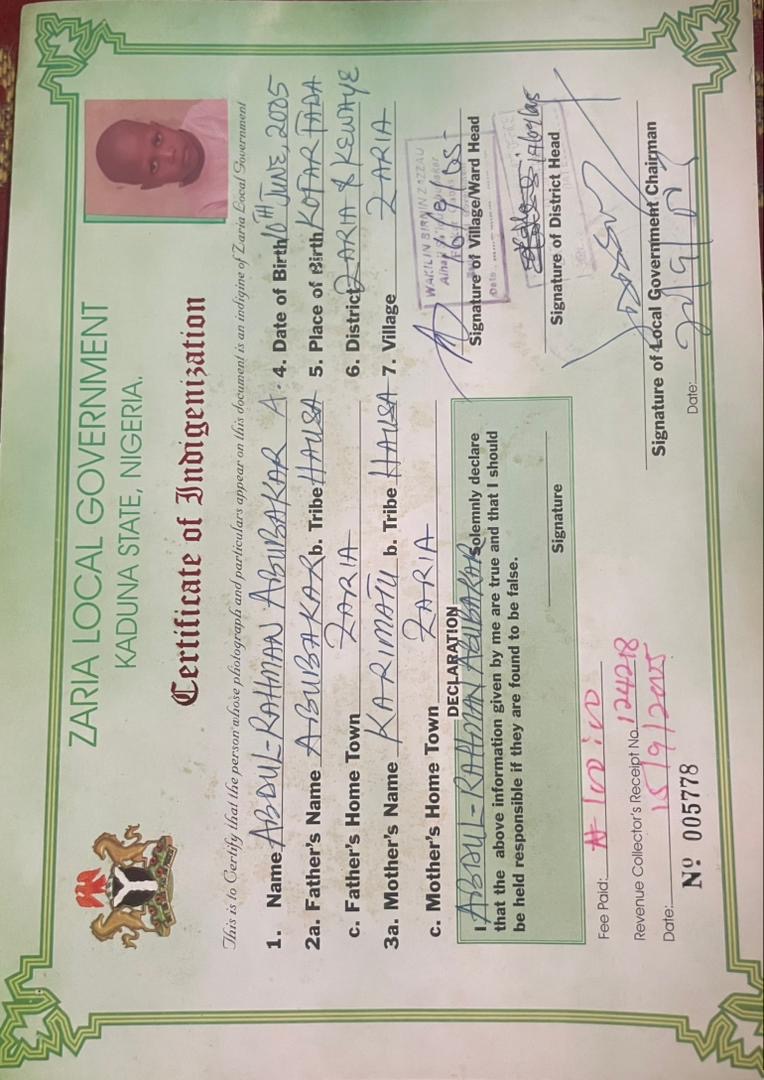 ZARIA LOCAL GOVERNMENT
KADUNA STATE, NIGERIA.
Certificate of Indigenization
This is to Certify that the person whose photograph and particulars appear on this document is an indigine of Zaria Local Government
1. Name ABDUL-RAHMAN ABUBAKAR A.
2a. Father's Name ABUBAKAR b. Tribe HAUSA
c. Father's Home Town ZARIA
3a. Mother's Name KARIMATU b. Tribe HAUSA
c. Mother's Home Town ZARIA
4. Date of Birth 10TH JUNE, 2005
5. Place of Birth KOFAR FADA
6. District ZARIA & KEWAYE
7. Village ZARIA
DECLARATION
I ABDUL-RAHMAN ABUBAKAR Solemnly declare
that the above information given by me are true and that I should
be held responsible if they are found to be false.
Signature
WAKILIN BIRNIN ZAZZAU
Date
Signature of Village/Ward Head
Signature of District Head
Signature of Local Government Chairman
Date:
Fee Paid:
Revenue Collector's Receipt No. 124218
Date: 15/9/2005
Nº 005778